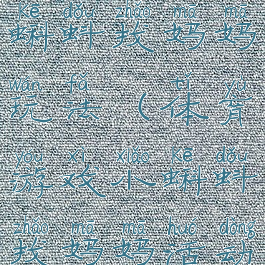 kē dǒu zhǎo mā mɑ
蝌蚪找妈妈
wán fǎ tǐ yù
玩法（体育
yóu xì xiǎo kē dǒu
游戏小蝌蚪
zhǎo mā mɑ huó dòng
找妈妈活动